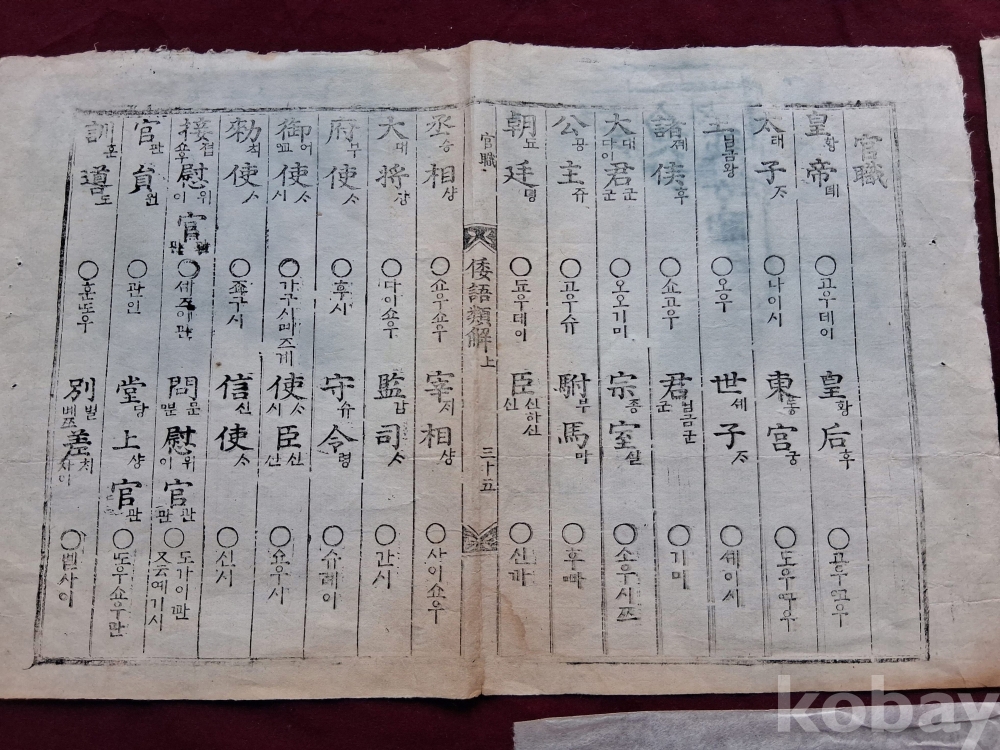 官職
皇황帝뎨 ○고우데이 皇황后후 ○고우고우
太태子ᄌᆞ ○나이시 東동宮궁 ○도우구우
王님금왕 ○오우 世세子ᄌᆞ ○세이시
諸졔侯후 ○쇼고우 君님금군군 ○기미
大대다이君군군 ○오오기미 宗종室실 ○소우시쯔
公공主쥬 ○고우슈 駙부馬마 ○후바
朝됴廷뎡 ○됴우데이 臣신하신신 ○신까
官職
倭語類解 上
三十五
丞승相샹 ○쇼우쇼우 宰ᄌᆡ相샹 ○사이쇼우
大대將쟝 ○다이쇼우 監감司ᄉᆞ ○간시
府부使ᄉᆞ ○후시 守슈令령 ○슈레이
御어교使ᄉᆞ시 ○가구시메즈게 使ᄉᆞ시臣신신 ○요우시
勅칙使ᄉᆞ ○죠구시 信신使ᄉᆞ ○신시
接졉쇼우慰위이官관관 ○세즈이관 問문몬慰위이官관관 ○도가이관 又云예기시
官관員원 ○관인 堂당上샹官관 ○도우쇼우관
訓훈導도 ○훈도우 別별베쯔差채차이 ○벳사이
kobay